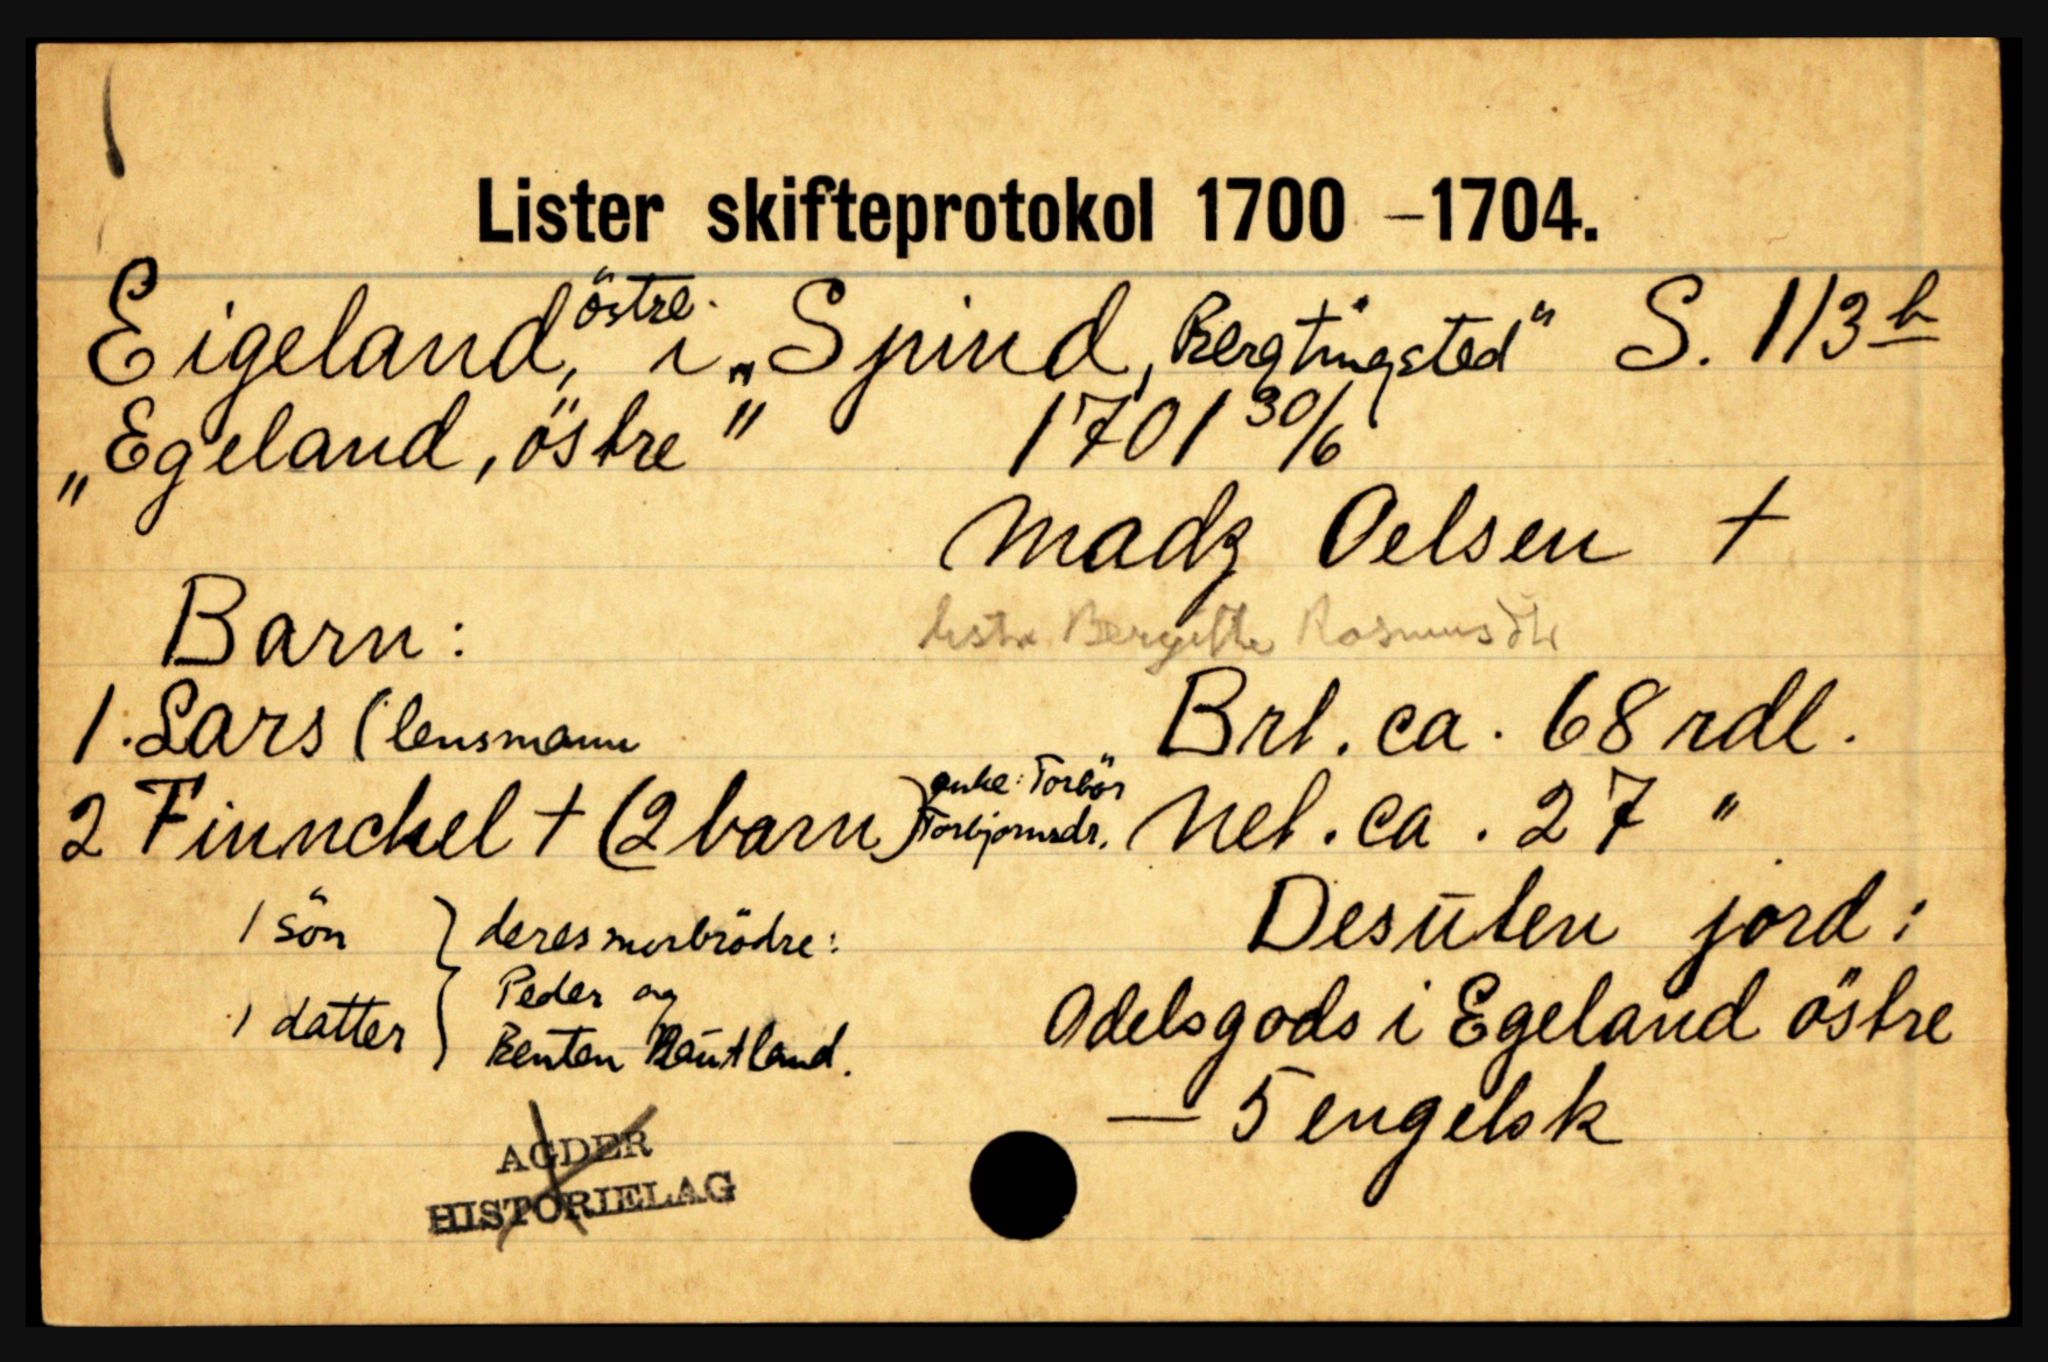 Lister skifteprotokol 1700 –1704.
Eigeland, östre. i „Spind, Bergtingsted“ S. 113 b
„Egeland, östre“ 1701 30/6
Madz Oelsen †
Bergitte Rasmusdtr
Barn:
1. Lars (lensmann Brt. ca. 68 rdl.
2 Finnckel † (2 barn) enke: Torbör Torbjornsdr. Net. ca. 27 "
1 sön } deres morbrödre:
1 datter } Peder og
Benten Rautland.
Desuten jord:
Odelsgods i Egeland östre
— 5 engelsk
AGDER
HISTORIELAG